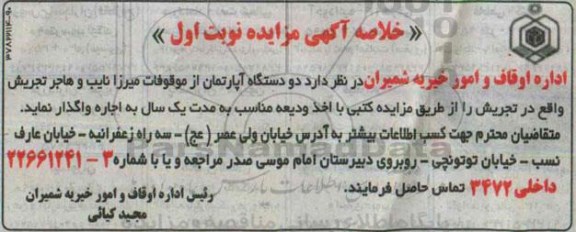 « خلاصه آگهی مزایده نوبت اول »
اداره اوقاف و امور خیریه شمیران در نظر دارد دو دستگاه آپارتمان از موقوفات میرزا نایب و هاجر تجریش
واقع در تجریش را از طریق مزایده کتبی با اخذ ودیعه مناسب به مدت یک سال به اجاره واگذار نماید.
متقاضیان محترم جهت کسب اطلاعات بیشتر به آدرس خیابان ولی عصر (عج) - سه راه زعفرانیه - خیابان عارف
نسب - خیابان توتونچی - روبروی دبیرستان امام موسی صدر مراجعه و یا با شماره ۳ - ۲۲۶۶۱۲۴۱
داخلی ۳۴۷۲ تماس حاصل فرمایند.
رئیس اداره اوقاف و امور خیریه شمیران
مجید کیائی